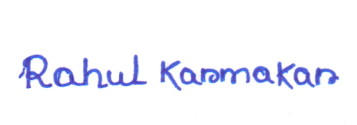 Rahul Karmakar